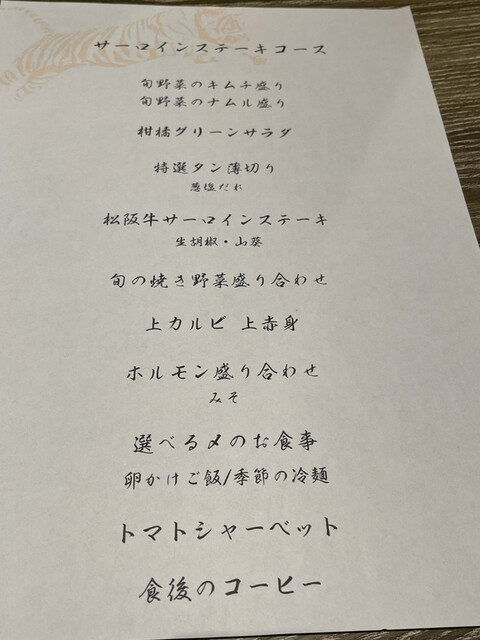 サーロインステーキコース
旬野菜のキムチ盛り
旬野菜のナムル盛り
柑橘グリーンサラダ
特選タン薄切り
葱塩だれ
松阪牛サーロインステーキ
生胡椒・山葵
旬の焼き野菜盛り合わせ
上カルビ 上赤身
ホルモン盛り合わせ
みそ
選べる〆のお食事
卵かけご飯/季節の冷麺
トマトシャーベット
食後のコーヒー